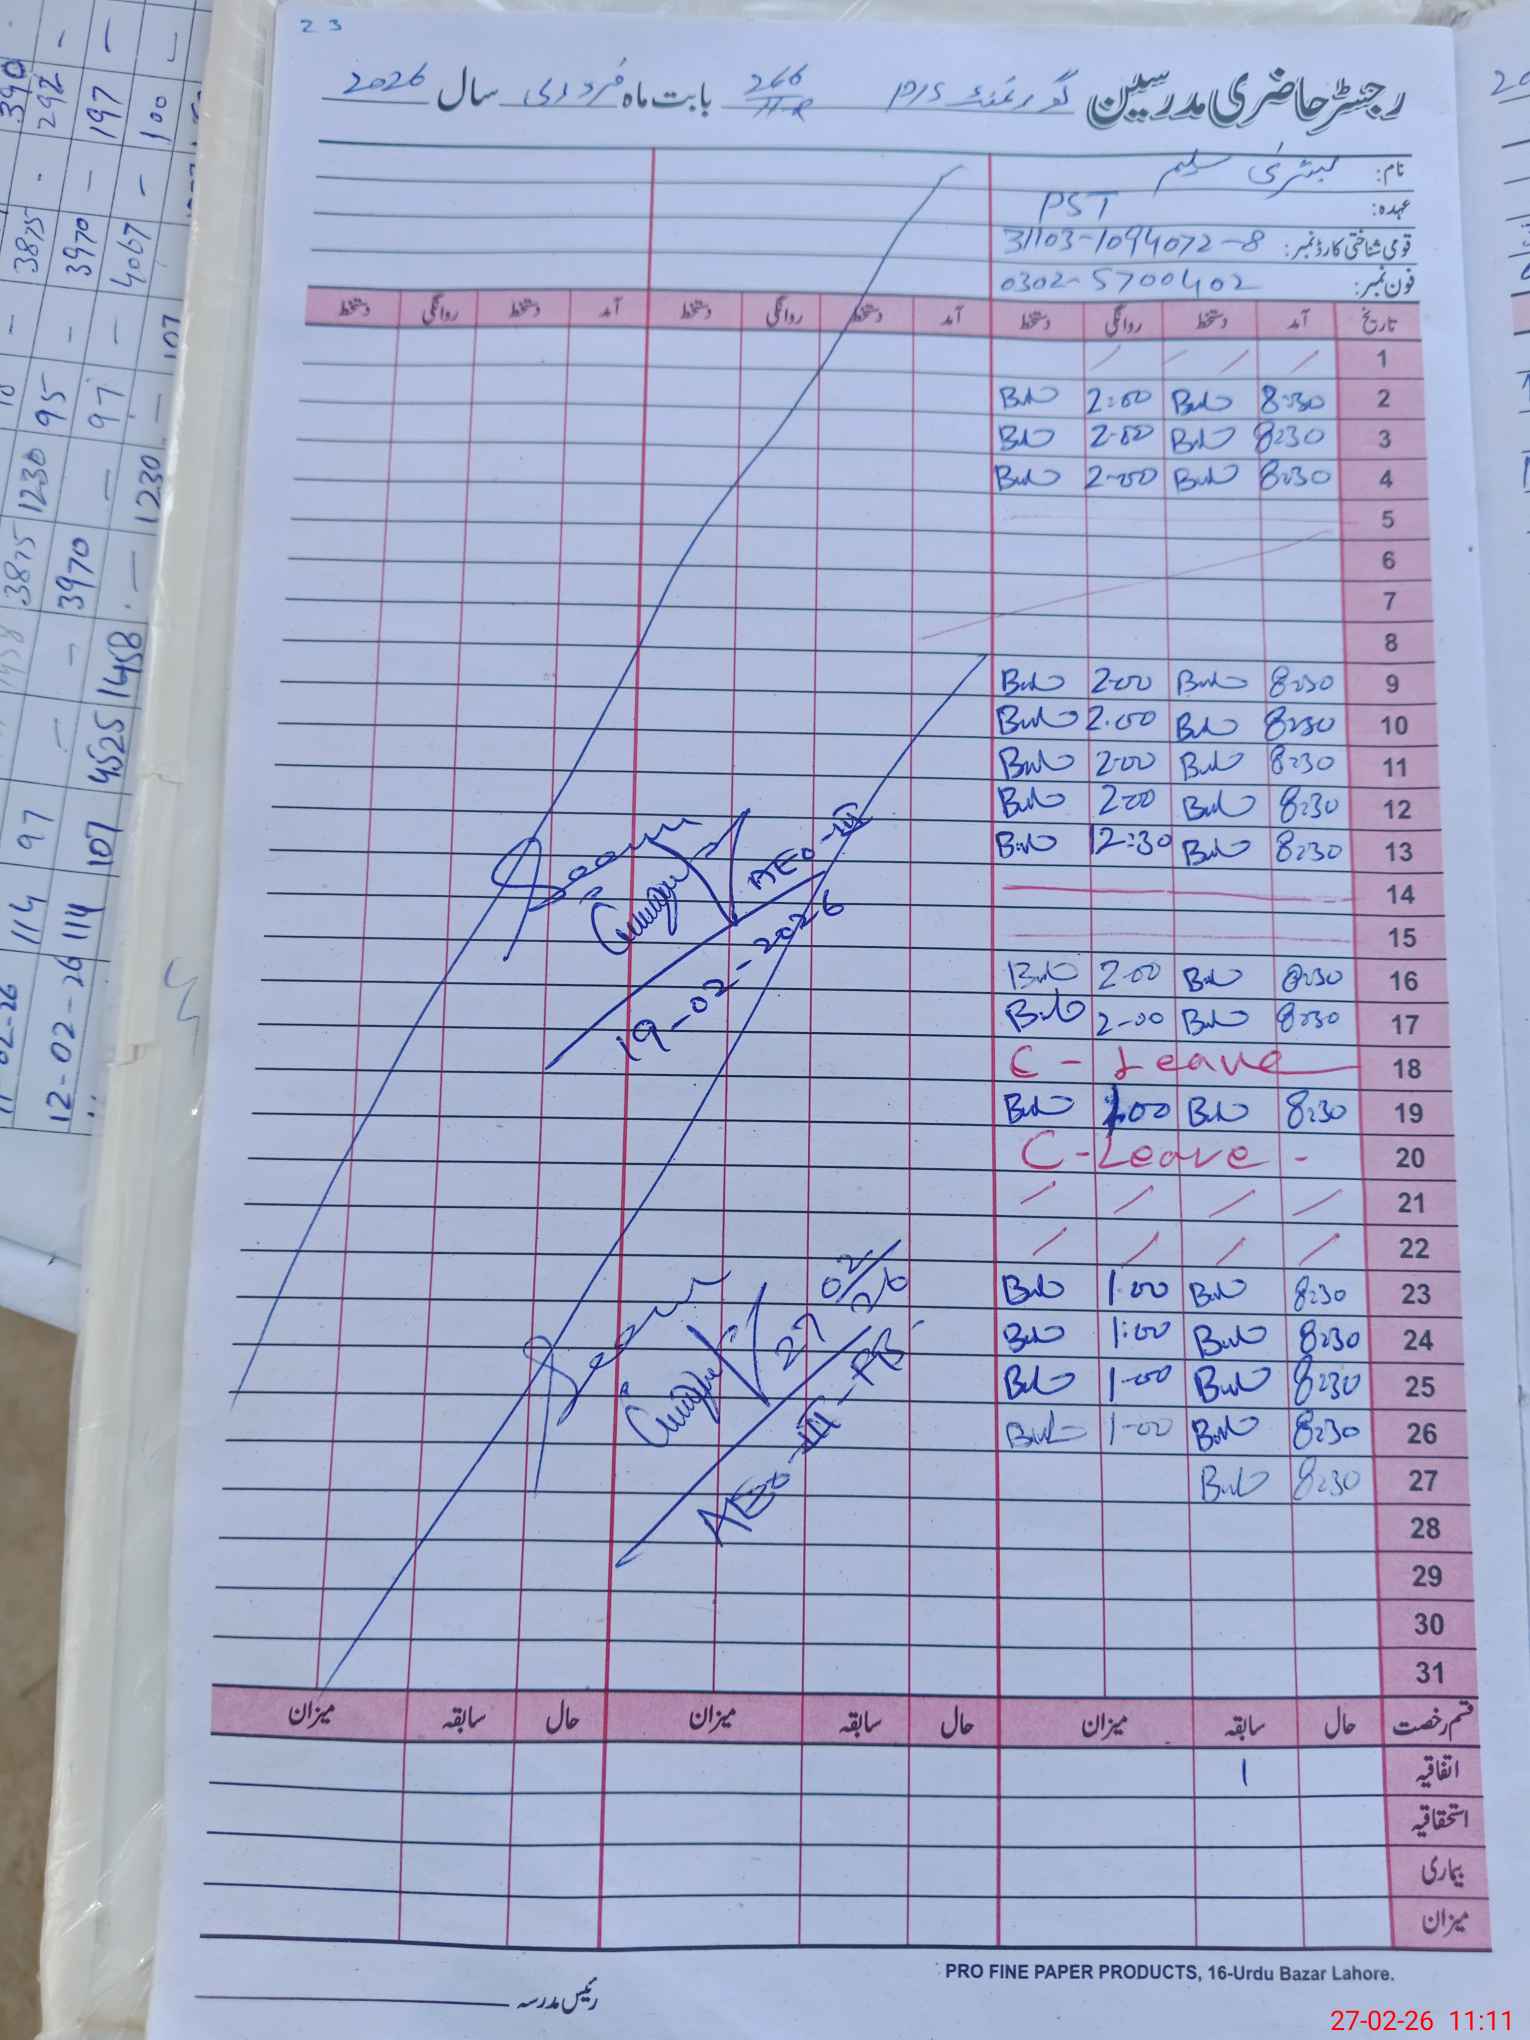 2 3
رجسٹر حاضری مدرسین گورنمنٹ P/S 266/11-R بابت ماہ فروری سال 2026
نام: بشریٰ سلیم
عہدہ: PST
قومی شناختی کارڈ نمبر: 31103-1094072-8
فون نمبر: 0302-5700402
تاریخ آمد دستخط روانگی دستخط آمد دستخط روانگی دستخط آمد دستخط روانگی دستخط
1
2 8:30 2:00
3 8:30 2-00
4 8:30 2-00
5
6
7
8
9 8:30 2-00
10 8:30 2.00
11 8:30 2-00
12 8:30 2-00
13 8:30 12:30
14
15
16 8:30 2-00
17 8:30 2-00
18 C - Leave
19 8:30 1.00
20 C - Leave -
21
22
23 8:30 1-00
24 8:30 1:00
25 8:30 1-00
26 8:30 1-00
27 8:30
28
29
30
31
AEO-III
19-02-2026
27 02/26
AEO-III-
قسم رخصت حال سابقہ میزان حال سابقہ میزان حال سابقہ میزان
اتفاقیہ 1
استحقاقیہ
بیماری
میزان
PRO FINE PAPER PRODUCTS, 16-Urdu Bazar Lahore.
رئیس مدرسہ
27-02-26 11:11
390
292 -
197 -
100 -
3875
3970 -
4067 -
107
1230
95
97
1230 -
3875
3970
1458
4525
97
107
114
114
12-02-26